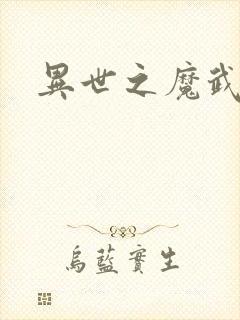 異世之魔武
烏藍實生